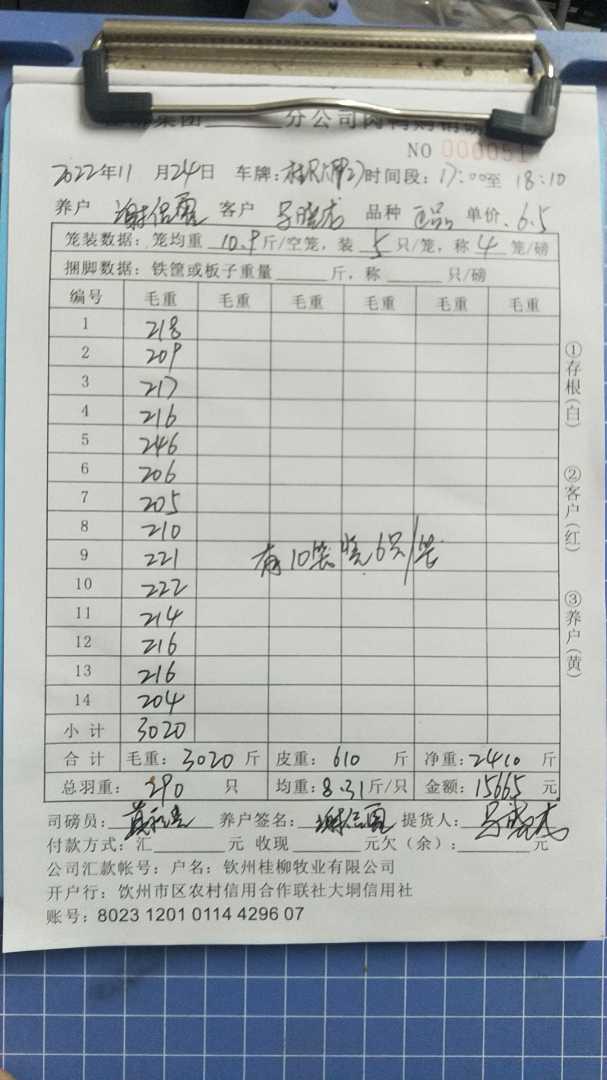 集团______分公司肉鸭购销
NO 000051
2022年11月24日 车牌: 时间段:17:00至18:10
养户 客户 品种 正品 单价 6.5
笼装数据:笼均重 10.9 斤/空笼,装 5 只/笼,称 4 笼/磅
捆脚数据:铁筐或板子重量______斤,称______只/磅
编号 毛重 毛重 毛重 毛重 毛重 毛重
1 218
2 209
3 217
4 216
5 246
6 206
7 205
8 210
9 221
有10笼装6只/笼
10 222
11 214
12 216
13 216
14 204
小计 3020
合计 毛重:3020斤 皮重:610斤 净重:2410斤
总羽重:290只 均重:8.31斤/只 金额:15665元
司磅员: 养户签名: 提货人:
付款方式:汇______元 收现______元欠(余):______元
公司汇款帐号:户名:钦州桂柳牧业有限公司
开户行:钦州市区农村信用合作联社大垌信用社
账号:8023 1201 0114 4296 07
①存根(白)
②客户(红)
③养户(黄)